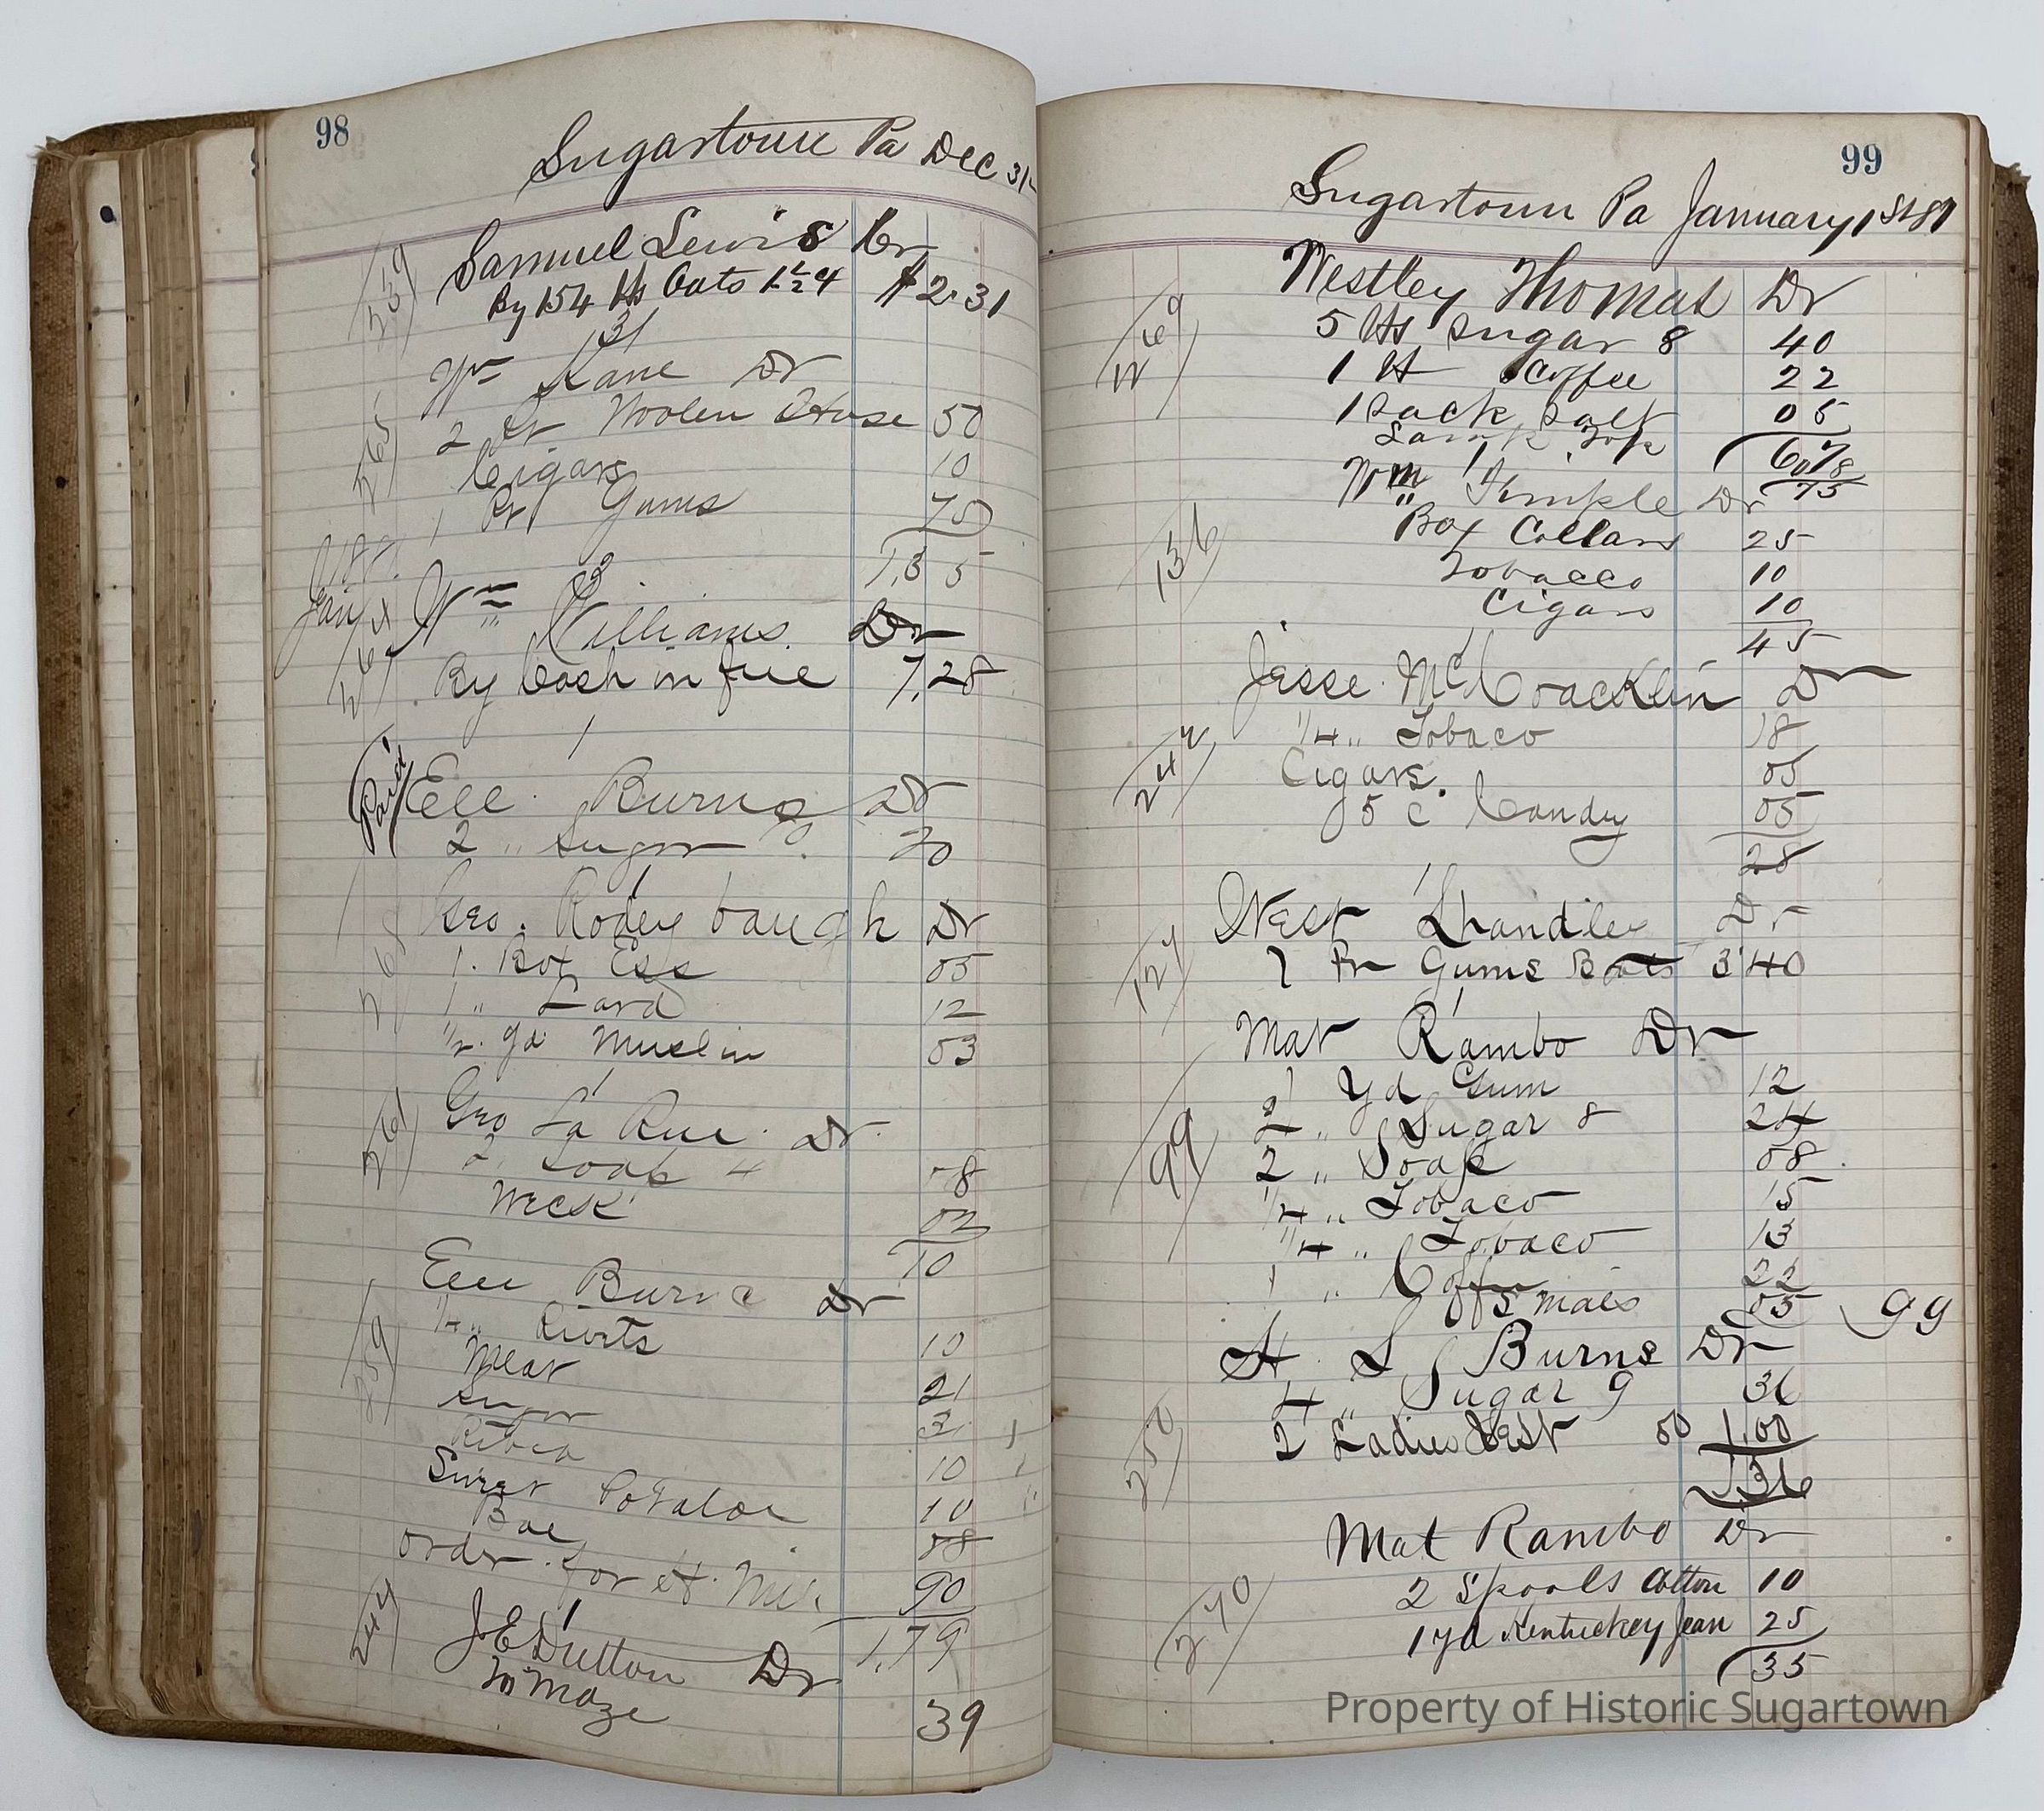 98
Sugartown Pa Dec 31
259
Samuel Lewis Cr
By 154 lbs Oats 1½ 4 $2.31
31
Wm Kane Dr
265
2 Pr Woolen Hose 50
Cigars 10
1 Pr Gums 75
1,35
Jan
Wm Williams Dr
By Cash in full 7,28
1
Paid
Ell Burns Dr
2 " Sugar 20
1
Geo. Rodeybaugh Dr
268
1. Box Ess 05
1 " Lard 12
½ yd Muslin 03
1
Geo La Rue Dr
261
2 Soap 4 08
Weck 02
10
Ell Burns Dr
259
¼ " Rivets 10
Meat 21
Sugar
10
Sweet Potatoe 10
08
order for H. 90
1,79
1
244
J E Dutton Dr
To Maze
39
99
Sugartown Pa January 1st 81
Westley Thomas Dr
269
5 lbs Sugar 8 40
1 lb Coffee 22
1 Sack Salt 05
67
75
1
Wm Temple Dr
136
Box Collars 25
Tobacco 10
Cigars 10
45
Jesse McCoacklin Dr
242
¼ " Tobaco 18
Cigars. 05
5 c Candy 05
28
1
West Chandler Dr
127
1 Pr Gums Boots 3 40
1
Mat Rambo Dr
99
1 Yd Gum 12
" Sugar 8 24
2 " Soap 08
¼ " Tobaco 15
¼ " Tobaco 13
1 " Coffe 22
05 99
H S Burns Dr
250
4 " Sugar 9 36
2 Ladies Vest 50 1,00
1,36
Mat Rambo Dr
270
2 Spools Cotton 10
1 yd Kentuckey Jean 25
35
Property of Historic Sugartown